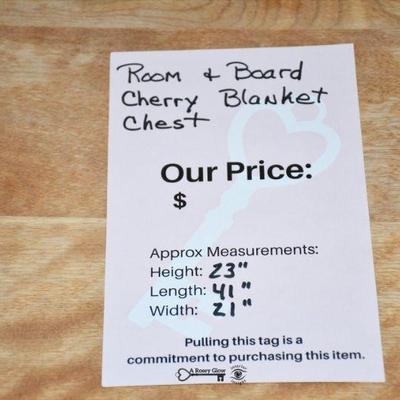 Room & Board
Cherry Blanket
Chest
Our Price:
$
Approx Measurements:
Height: 23"
Length: 41"
Width: 21"
Pulling this tag is a
commitment to purchasing this item.
A Rosey Glow